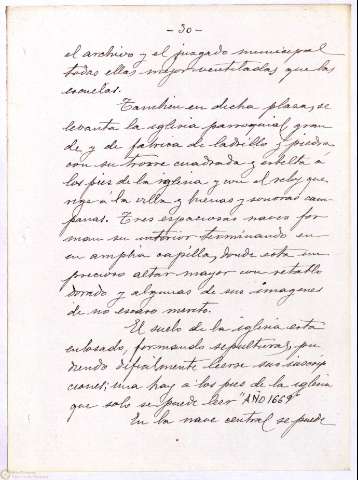 - 30 -
el archivo y el juzgado municipal
todas ellas mejor ventiladas que las
escuelas.
Tambien en dicha plaza, se
levanta la iglesia parroquial, gran
de, y de fabrica de ladrillo y piedra
con su torre cuadrada y esbelta á
los pies de la iglesia y con el reloj que
rige á la villa y buenas y sonoras cam
panas. Tres espaciosas naves for
man su interior terminando en
en amplia capilla, donde esta un
precioso altar mayor con retablo
dorado y algunas de sus imagenes
de no escaso merito.
El suelo de la iglesia esta
enlosado, formando sepulturas, pu
diendo dificilmente leerse sus inscrip
ciones; una hay a los pies de la iglesia
que solo se puede leer "AÑO 1669"
En la nave central se puede